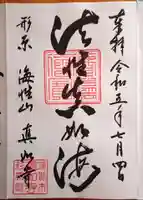 奉拝 令和五年七月四日
法性真如海
形原 海性山 真如寺